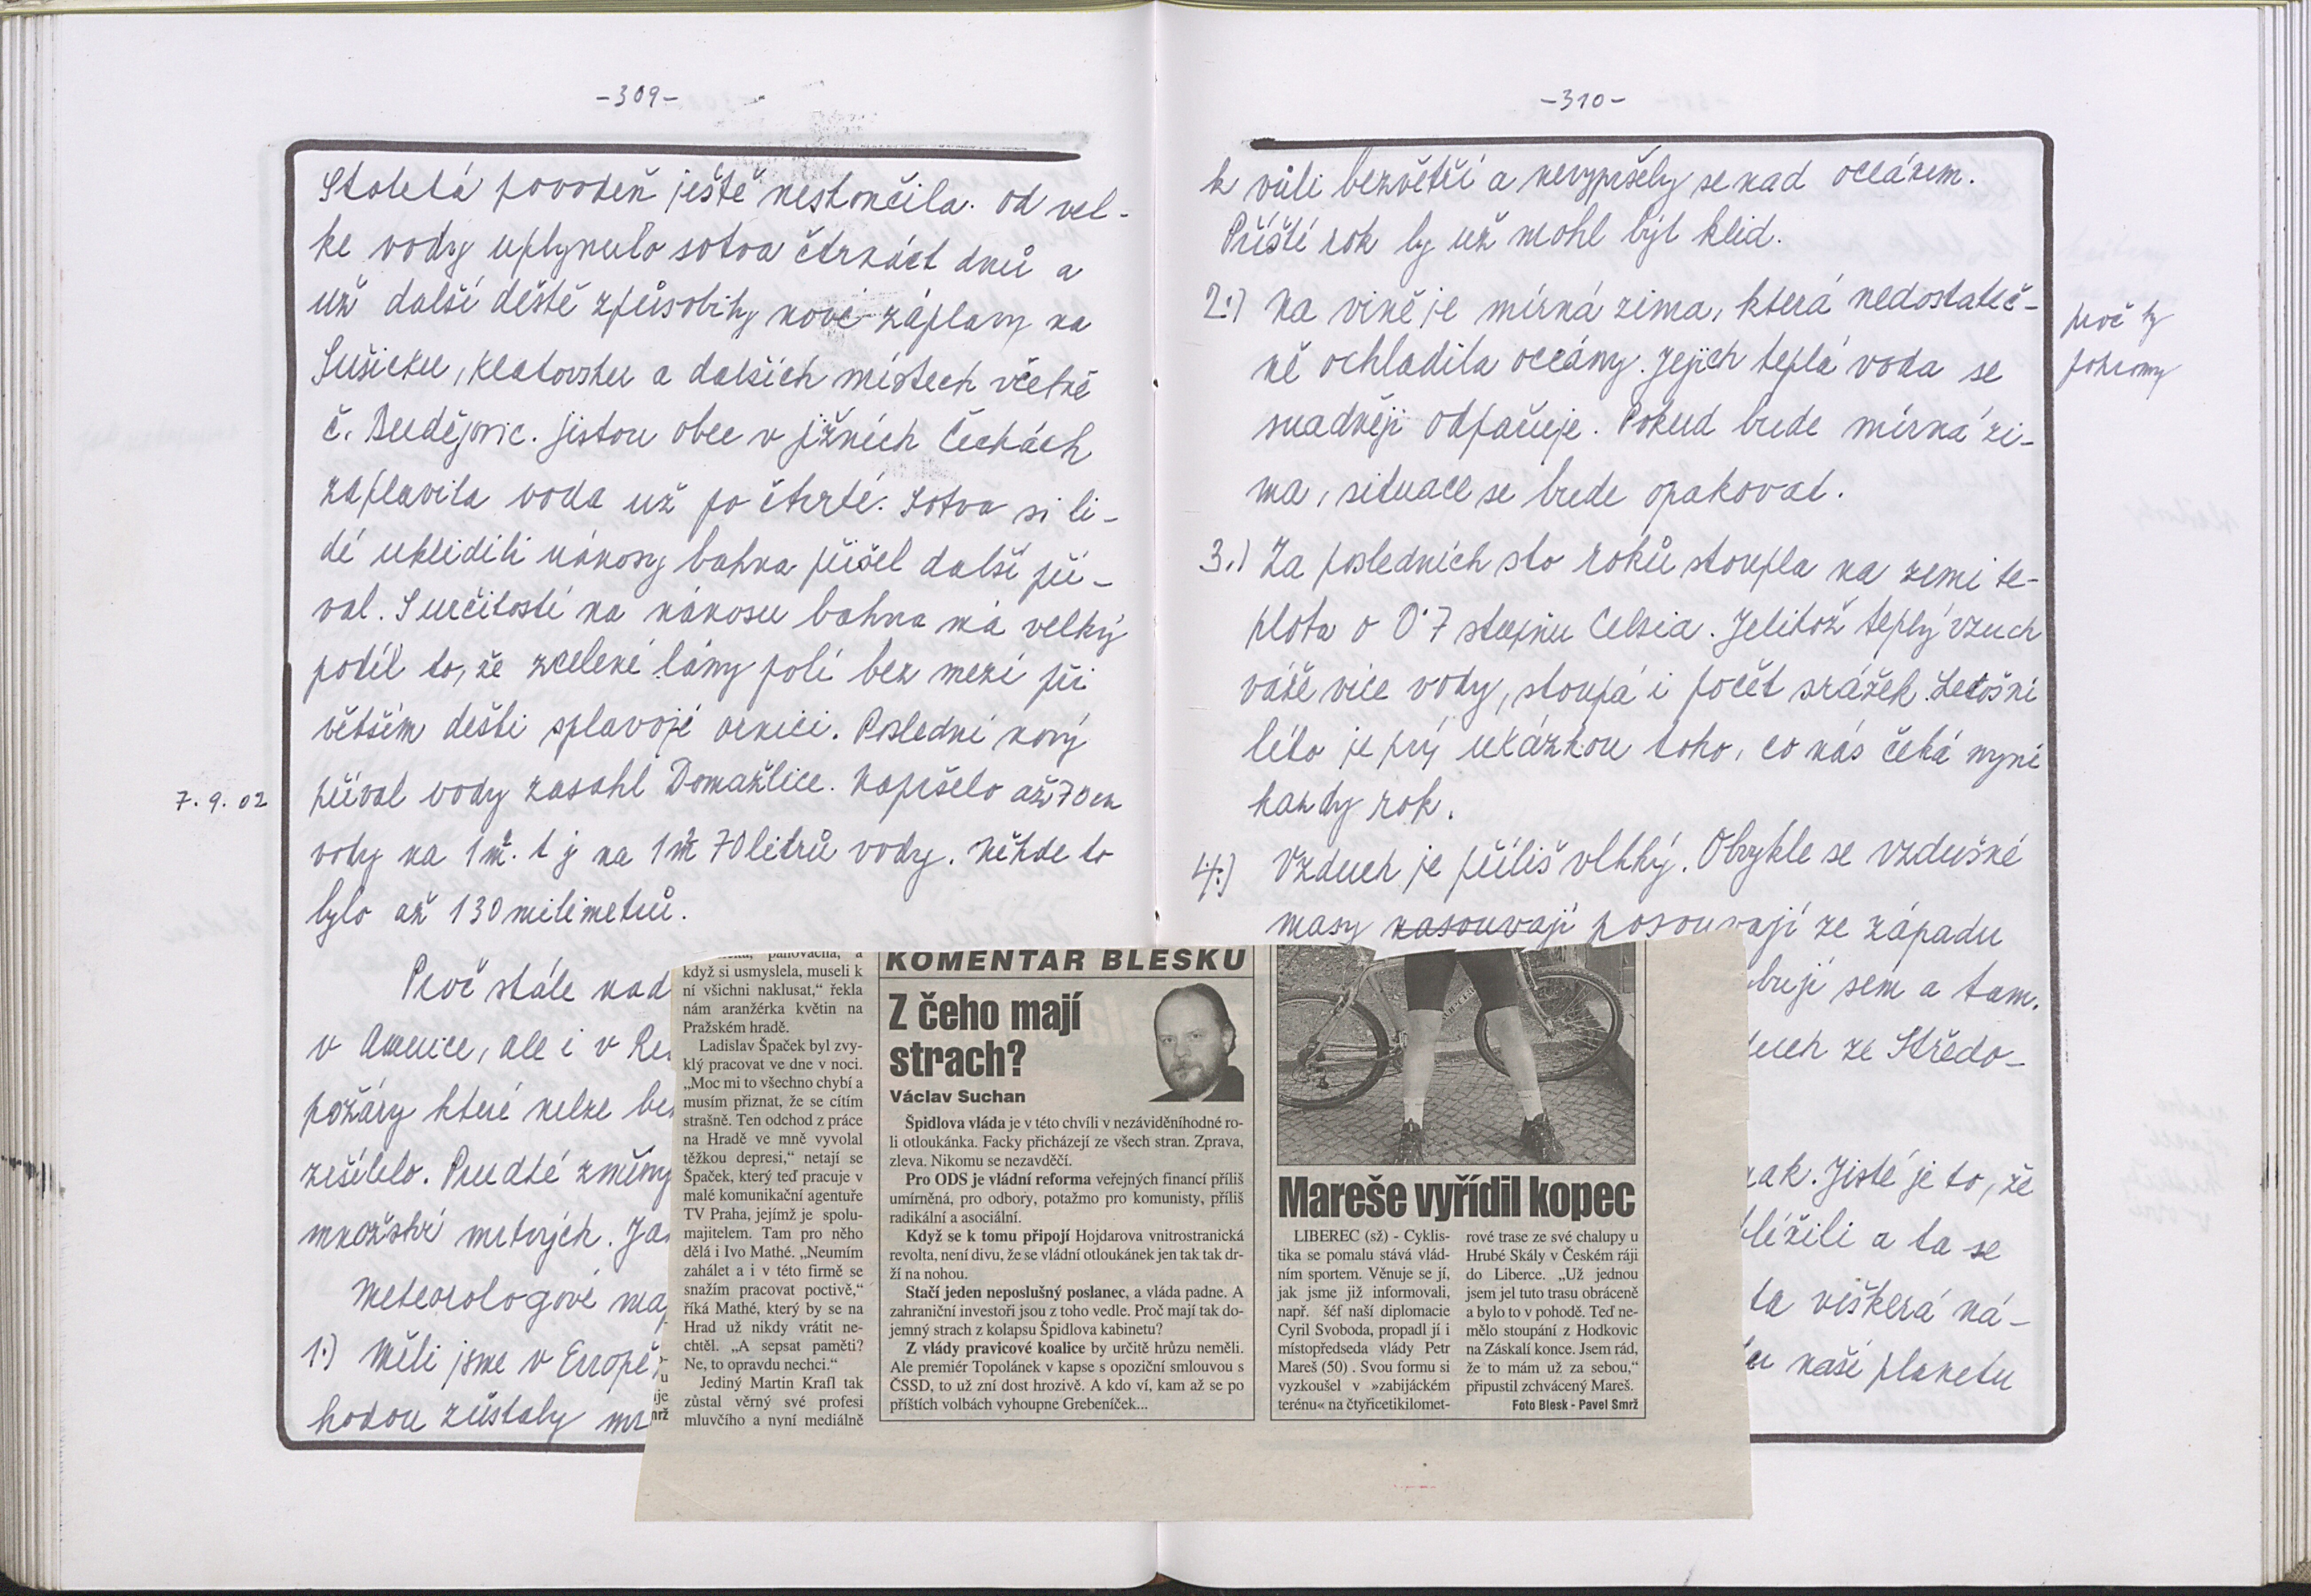 -309-
Stoletá povodeň ještě neskončila. Od vel-
ke vody uplynulo sotva čtrnáct dnů a
už další deště způsobily nové záplavy na
Sušicku, Klatovsku a dalších místech včetně
Č. Budějovic. Jistou obec v jižních Čechách
zaplavila voda už po čtvrté. Sotva si li-
dé uklidili nánosy bahna přišel další pří-
val. S určitostí na nánosu bahna má velký
podíl to, že zcelené lány polí bez mezí při
větším dešti splavují ornici. Poslední nový
7.9.02
příval vody zasáhl Domažlice. Napršelo až 70 cm
vody na 1 m². t j na 1 m² 70 litrů vody. Někde to
bylo až 130 milimetrů.
Proč stále nad
v Americe, ale i v
požáry které nelze
zešílelo. Prudké změny
množství mrtvých.
Meteorologové
1.) Měli jsme v Evropě
hodou zůstaly
-310-
k vůli bezvětří a nevypršely se nad oceánem.
Příští rok by už mohl být klid.
2.) Na vině je mírná zima, která nedostateč-
ně ochladila oceány. Jejich teplá voda se
snadněji odpařuje. Pokud bude mírná zi-
ma, situace se bude opakovat.
proč ty
pohromy
3.) Za posledních sto roků stoupla na zemi te-
plota o 0˙7 stupňu Celsia. Jelitož teplý vzuch
váže více vody, stoupá i počet srážek. Letošní
léto je prý ukázkou toho, co nás čeká nyní
kazdy rok.
4.) Vzduch je příliš vlhký. Obvykle se vzdušné
masy nasouvají posouvají ze západu
sem a tam.
ze Středo-
Jisté je to, že
a ta se
ta veškerá ná-
naší planetu
když si usmyslela, museli k
ní všichni naklusat,“ řekla
nám aranžérka květin na
Pražském hradě.
Ladislav Špaček byl zvy-
klý pracovat ve dne v noci.
„Moc mi to všechno chybí a
musím přiznat, že se cítím
strašně. Ten odchod z práce
na Hradě ve mně vyvolal
těžkou depresi,“ netají se
Špaček, který teď pracuje v
malé komunikační agentuře
TV Praha, jejímž je spolu-
majitelem. Tam pro něho
dělá i Ivo Mathé. „Neumím
zahálet a i v této firmě se
snažím pracovat poctivě,“
říká Mathé, který by se na
Hrad už nikdy vrátit ne-
chtěl. „A sepsat paměti?
Ne, to opravdu nechci.“
Jediný Martin Krafl tak
zůstal věrný své profesi
mluvčího a nyní mediálně
KOMENTÁŘ BLESKU
Z čeho mají
strach?
Václav Suchan
Špidlova vláda je v této chvíli v nezáviděníhodné ro-
li otloukánka. Facky přicházejí ze všech stran. Zprava,
zleva. Nikomu se nezavděčí.
Pro ODS je vládní reforma veřejných financí příliš
umírněná, pro odbory, potažmo pro komunisty, příliš
radikální a asociální.
Když se k tomu připojí Hojdarova vnitrostranická
revolta, není divu, že se vládní otloukánek jen tak tak dr-
ží na nohou.
Stačí jeden neposlušný poslanec, a vláda padne. A
zahraniční investoři jsou z toho vedle. Proč mají tak do-
jemný strach z kolapsu Špidlova kabinetu?
Z vlády pravicové koalice by určitě hrůzu neměli.
Ale premiér Topolánek v kapse s opoziční smlouvou s
ČSSD, to už zní dost hrozivě. A kdo ví, kam až se po
příštích volbách vyhoupne Grebeníček...
Mareše vyřídil kopec
LIBEREC (sž) - Cyklis-
tika se pomalu stává vlád-
ním sportem. Věnuje se jí,
jak jsme již informovali,
např. šéf naší diplomacie
Cyril Svoboda, propadl jí i
místopředseda vlády Petr
Mareš (50) . Svou formu si
vyzkoušel v »zabijáckém
terénu« na čtyřicetikilomet-
rové trase ze své chalupy u
Hrubé Skály v Českém ráji
do Liberce. „Už jednou
jsem jel tuto trasu obráceně
a bylo to v pohodě. Teď ne-
mělo stoupání z Hodkovic
na Záskalí konce. Jsem rád,
že to mám už za sebou,“
připustil zchvácený Mareš.
Foto Blesk - Pavel Smrž